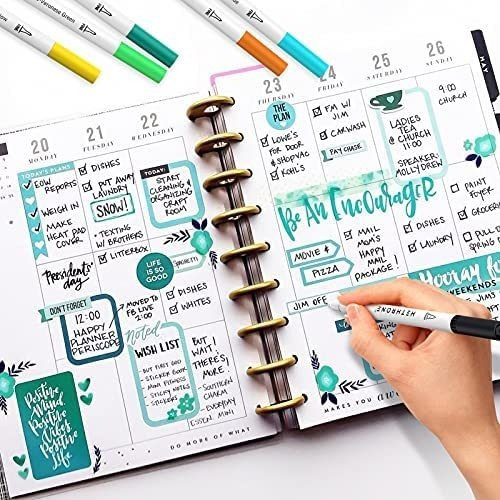 Veronese Green
20
MONDAY
21
TUESDAY
22
WEDNESDAY
TODAY'S PLANS
EOW
REPORTS
WEIGH IN
MAKE
HEAT PAD
COVER
Presidents'
day
DON'T FORGET
12:00
HAPPY
PLANNER
PERISCOPE
Positive
Mind
Positive
Vibes
Positive
Life
DISHES
PUT AWAY
LAUNDRY
SNOW!
TEXTING
W/ BROTHERS
LITTERBOX
MOVED TO
FB LIVE
2:00
Noted
WISH LIST
- BUT FIRST GOD
- STICKER BOOK
- MINI FITNESS
- STICKY NOTES
- STICKERS
TODAY:
START
CLEANING &
ORGANIZING
CRAFT
ROOM
LIFE IS
SO GOOD
SPAGHETTI
DISHES
WHITES
BUT,
WAIT!
THERE'S
MORE:
- SOUTHERN
CHARM
- EVERYDAY
ESSEN. MINI
DO MORE OF WHAT
23
THURSDAY
24
FRIDAY
25
SATURDAY
26
SUNDAY
MAY
THE
PLAN
LOWE'S
FOR DOOR
& SHOPVAC
KOHL'S
FM W/
JIM
CARWASH
PAY CHASE
LADIES
TEA @
CHURCH
11:00
SPEAKER:
MOLLY DREW
9:00
CHURCH
Be An Encourager
MOVIE &
PIZZA
JIM OFF
MAIL
MOM'S
HAPPY
MAIL
PACKAGE!
DISHES
LAUNDRY
PAINT
FOYER
GROCERY
PULL OUT
SPRING
Hooray for
WEEKENDS
MAKES YOU